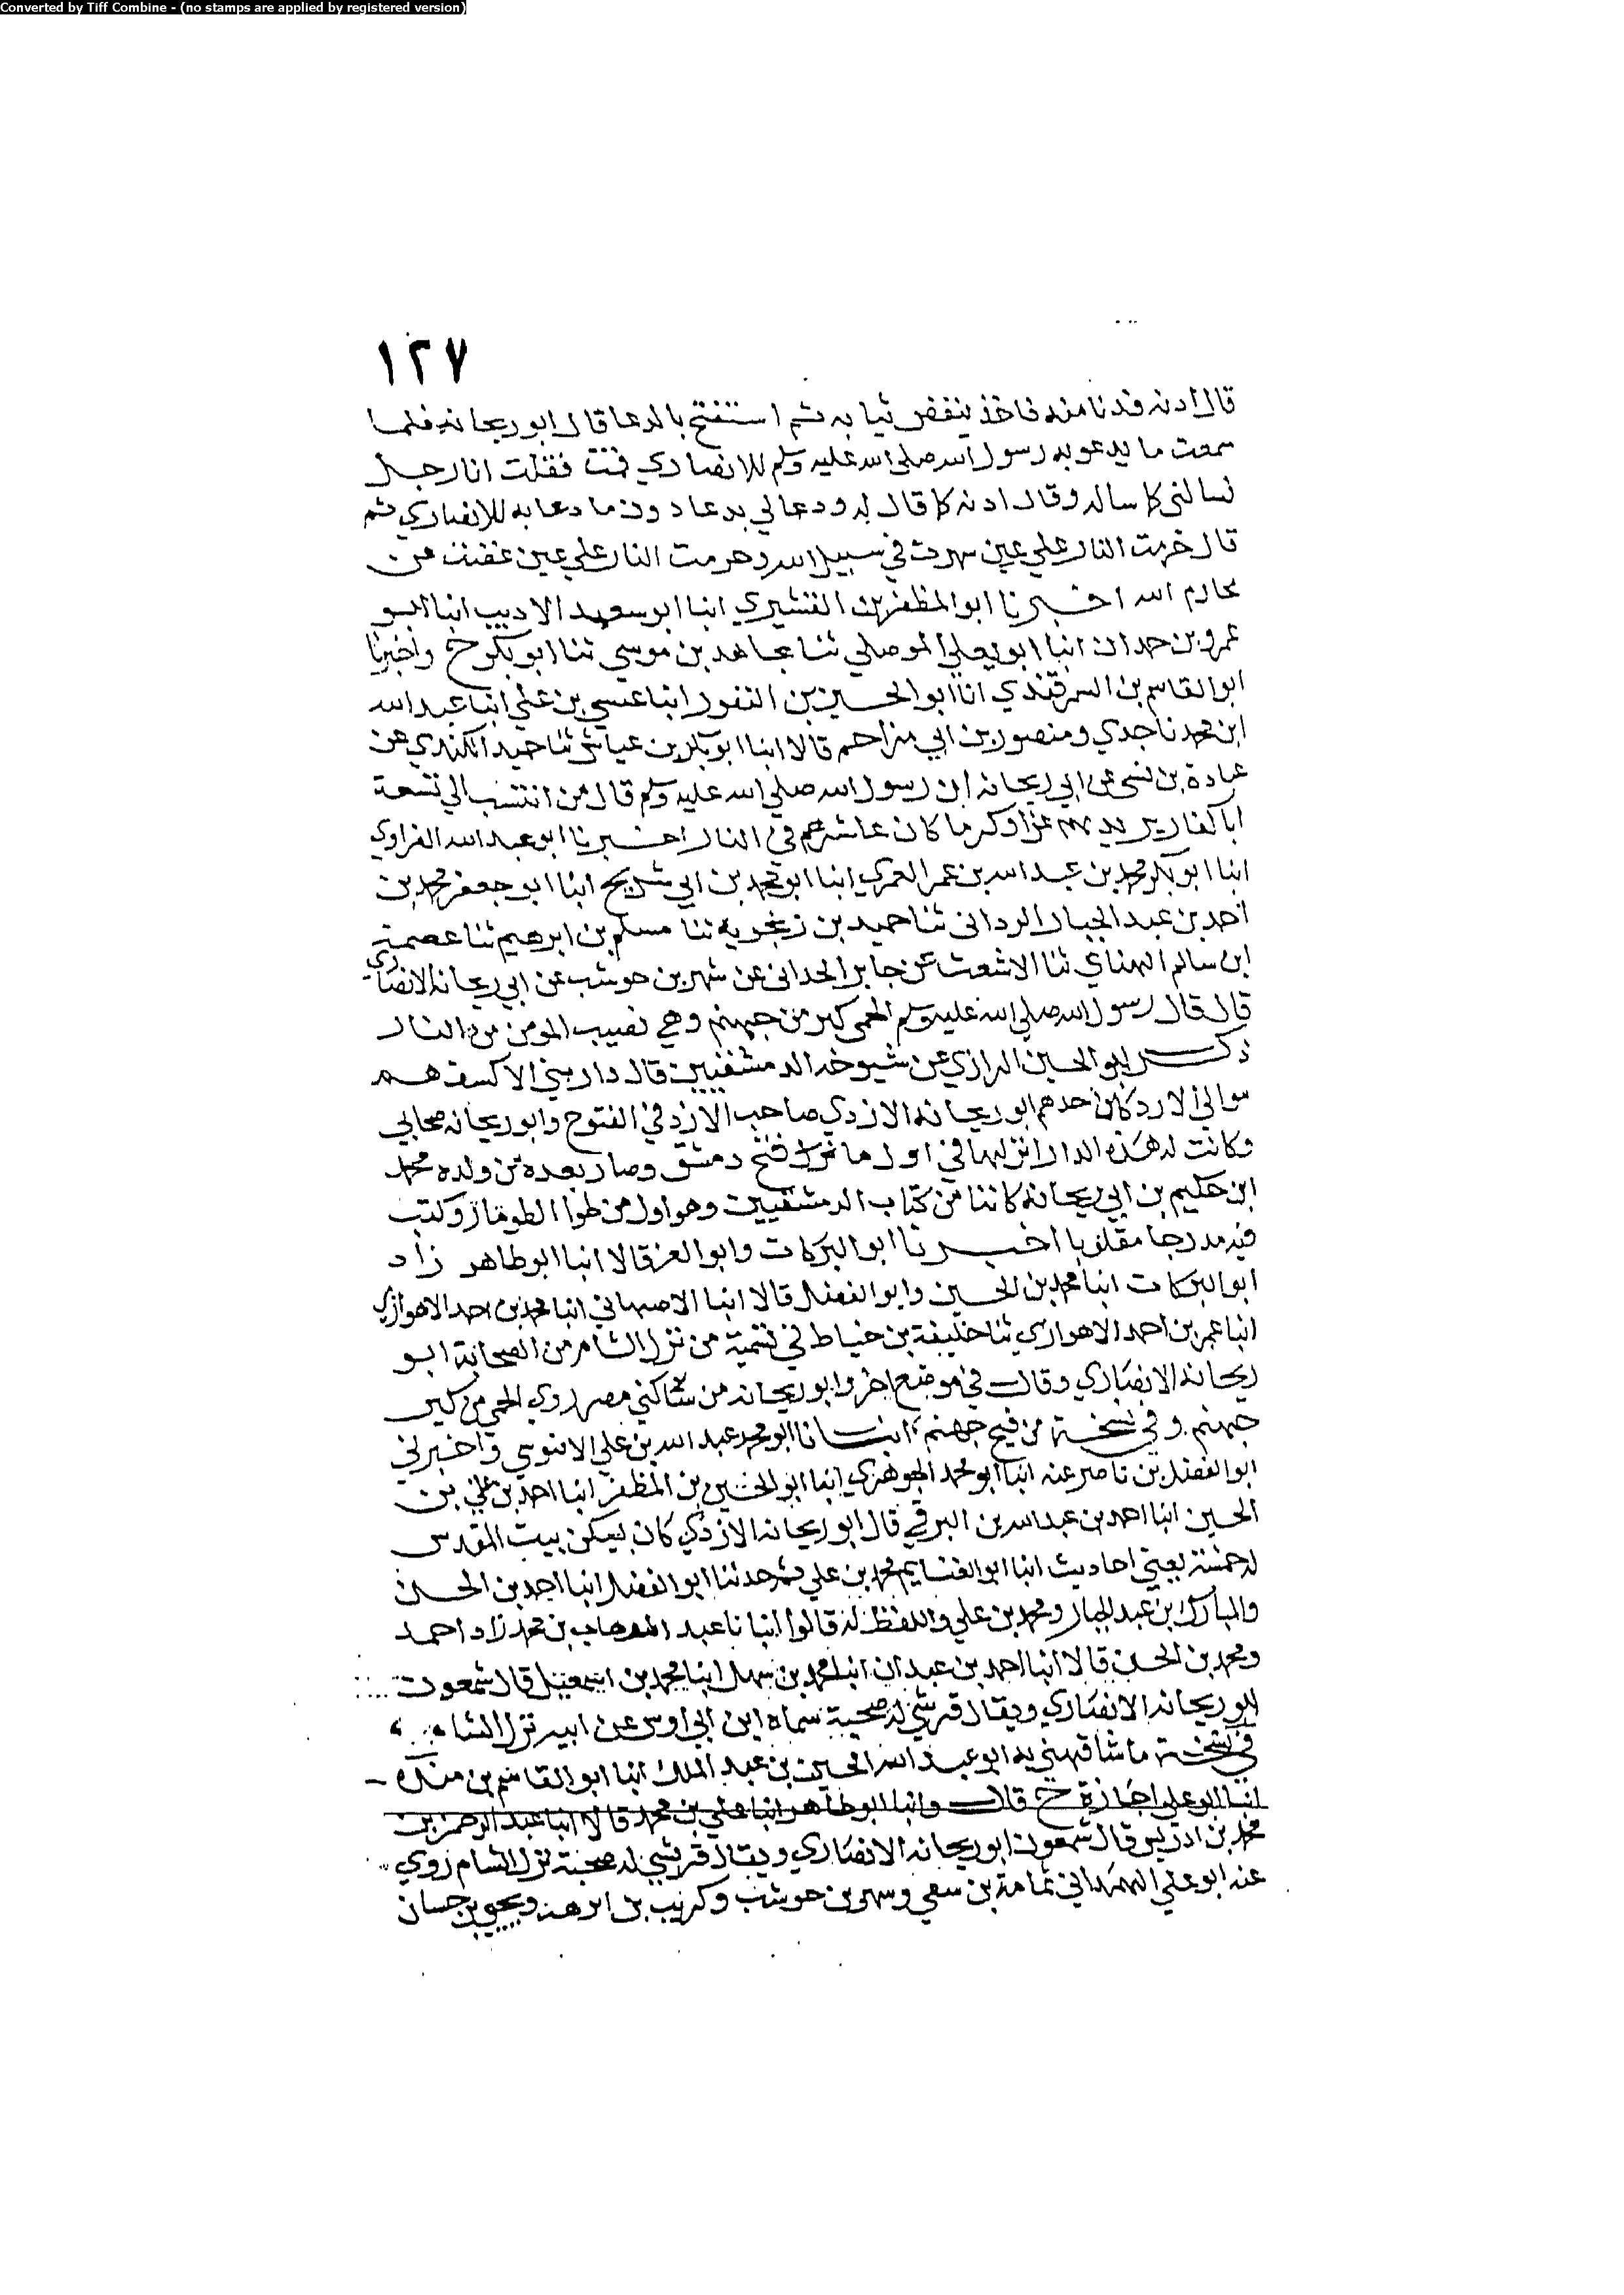 Converted by Tiff Combine - (no stamps are applied by registered version)
١٢٧
قال ادنه فدنا منه فاخذ ينفض ثيابه ثم استفتح بالدعا قال ابو ريحانه فلما
سمعت ما يدعو به رسول الله صلى الله عليه وسلم للانصاري قمت فقلت انا رجل
فسالني كما ساله وقال ادنه كما قال له ودعا لي بدعا دون ما دعا به للانصاري ثم
قال حرمت النار علي عين سهرت في سبيل الله وحرمت النار علي عين غضت عن
محارم الله اخبرنا ابو المظفر بن القشيري انبا ابو سعيد الاديب انبا ابو
عمرو بن حمدان انبا ابو يعلي الموصلي ثنا مجاهد بن موسي ثنا ابو بكر ح واخبرنا
ابو القاسم بن السمرقندي انا ابو الحسين بن النقور انبا عيسي بن علي انبا عبد الله
ابن محمد نا جدي ومنصور بن ابي مزاحم قالا انبا ابو بكر بن عياش ثنا حميد الكندي عن
عبادة بن نسي عن ابي ريحانه ان رسول الله صلي الله عليه وسلم قال من انتسب الي تسعة
ابا كفار يريد بهم عزا وكرما كان عاشرهم في النار اخبرنا ابو عبد الله الفراوي
انبا ابو بكر محمد بن عبد الله بن عمر العمري انبا ابو محمد بن ابي شريح انبا ابو جعفر محمد بن
احمد بن عبد الجبار الرداني ثنا حميد بن زنجوية ثنا مسلم بن ابرهيم ثنا عصمة
ابن سالم الهناي ثنا الاشعث عن جابر الحداني عن شهر بن حوشب عن ابي ريحانه الانصاري
قال قال رسول الله صلي الله عليه وسلم الحمي كير من جهنم وهي نصيب المومن من النار
ذكر ابو الحسين الرازي عن شيوخه الدمشقيين قال دار بني الاكسف هم
موالي الازد كان احدهم ابو ريحانه الازدي صاحب الازد في الفتوح وابو ريحانه صحابي
وكانت له هذه الدار انزلها في اول ما فتح دمشق وصار بعده من ولده محمد
ابن حكيم بن ابي ريحانه كاتبا من كتاب الدمشقيين وهو اول من طوا الطومار وكتب
فيه مدرجا مقلوبا اخبرنا ابو البركات وابو العز قالا انبا ابو طاهر زاد
ابو البركات انبا محمد بن الحسين وابو الفضل قالا انبا الاصبهاني انبا محمد بن احمد الاهوازي
انبا عمر بن احمد الاهوازي ثنا خليفة بن خياط في تسمية من نزل الشام من الصحابة ابو
ريحانه الانصاري وقال في موضع اخر وابو ريحانه من ساكني مصر روي الحمي من كير
جهنم وفي نسخة من فيح جهنم انبانا ابو محمد عبد الله بن علي الابنوسي واخبرني
ابو الفضل بن ناصر عنه انبا ابو محمد الجوهري انبا ابو الحسين بن المظفر انبا احمد بن علي بن
الحسين انبا احمد بن عبد الله بن البرقي قال ابو ريحانه الازدي كان يسكن بيت المقدس
له خمسة يعني احاديث انبا ابو الغنايم محمد بن علي ثم حدثنا ابو الفضل انبا احمد بن الحسن
والمبارك بن عبد الجبار ومحمد بن علي واللفظ له قالوا انبانا عبد الوهاب بن محمد زاد احمد
ومحمد بن الحسن قالا انبا احمد بن عبدان انبا محمد بن سهل انبا محمد بن اسمعيل قال شمعون
ابو ريحانه الانصاري ويقال قرشي له صحبة سماه ابن ابي اوس عن ابيه نزل الشام
في نسخة ما شافهني به ابو عبد الله الحسين بن عبد الملك انبا ابو القاسم بن منده
انبا ابو علي اجازة ح قال وانبا ابو طاهر انبا علي بن محمد قالا انبا عبد الرحمن بن
محمد بن ادريس قال شمعون ابو ريحانه الانصاري ويقال قرشي له صحبة نزل الشام روي
عنه ابو علي الهمداني ثمامة بن شفي وشهر بن حوشب وكريب بن ابرهة ويحيي بن حسان